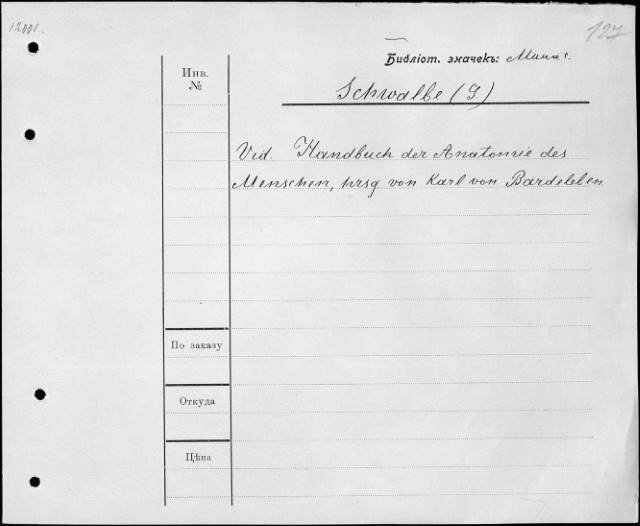 12001.
127
Библіот. значекъ:
Инв. №
Schwalbe (G)
Vid. Handbuch der Anatomie des
Menschen, hrsg von Karl von Bardeleben
По заказу
Откуда
Цѣна